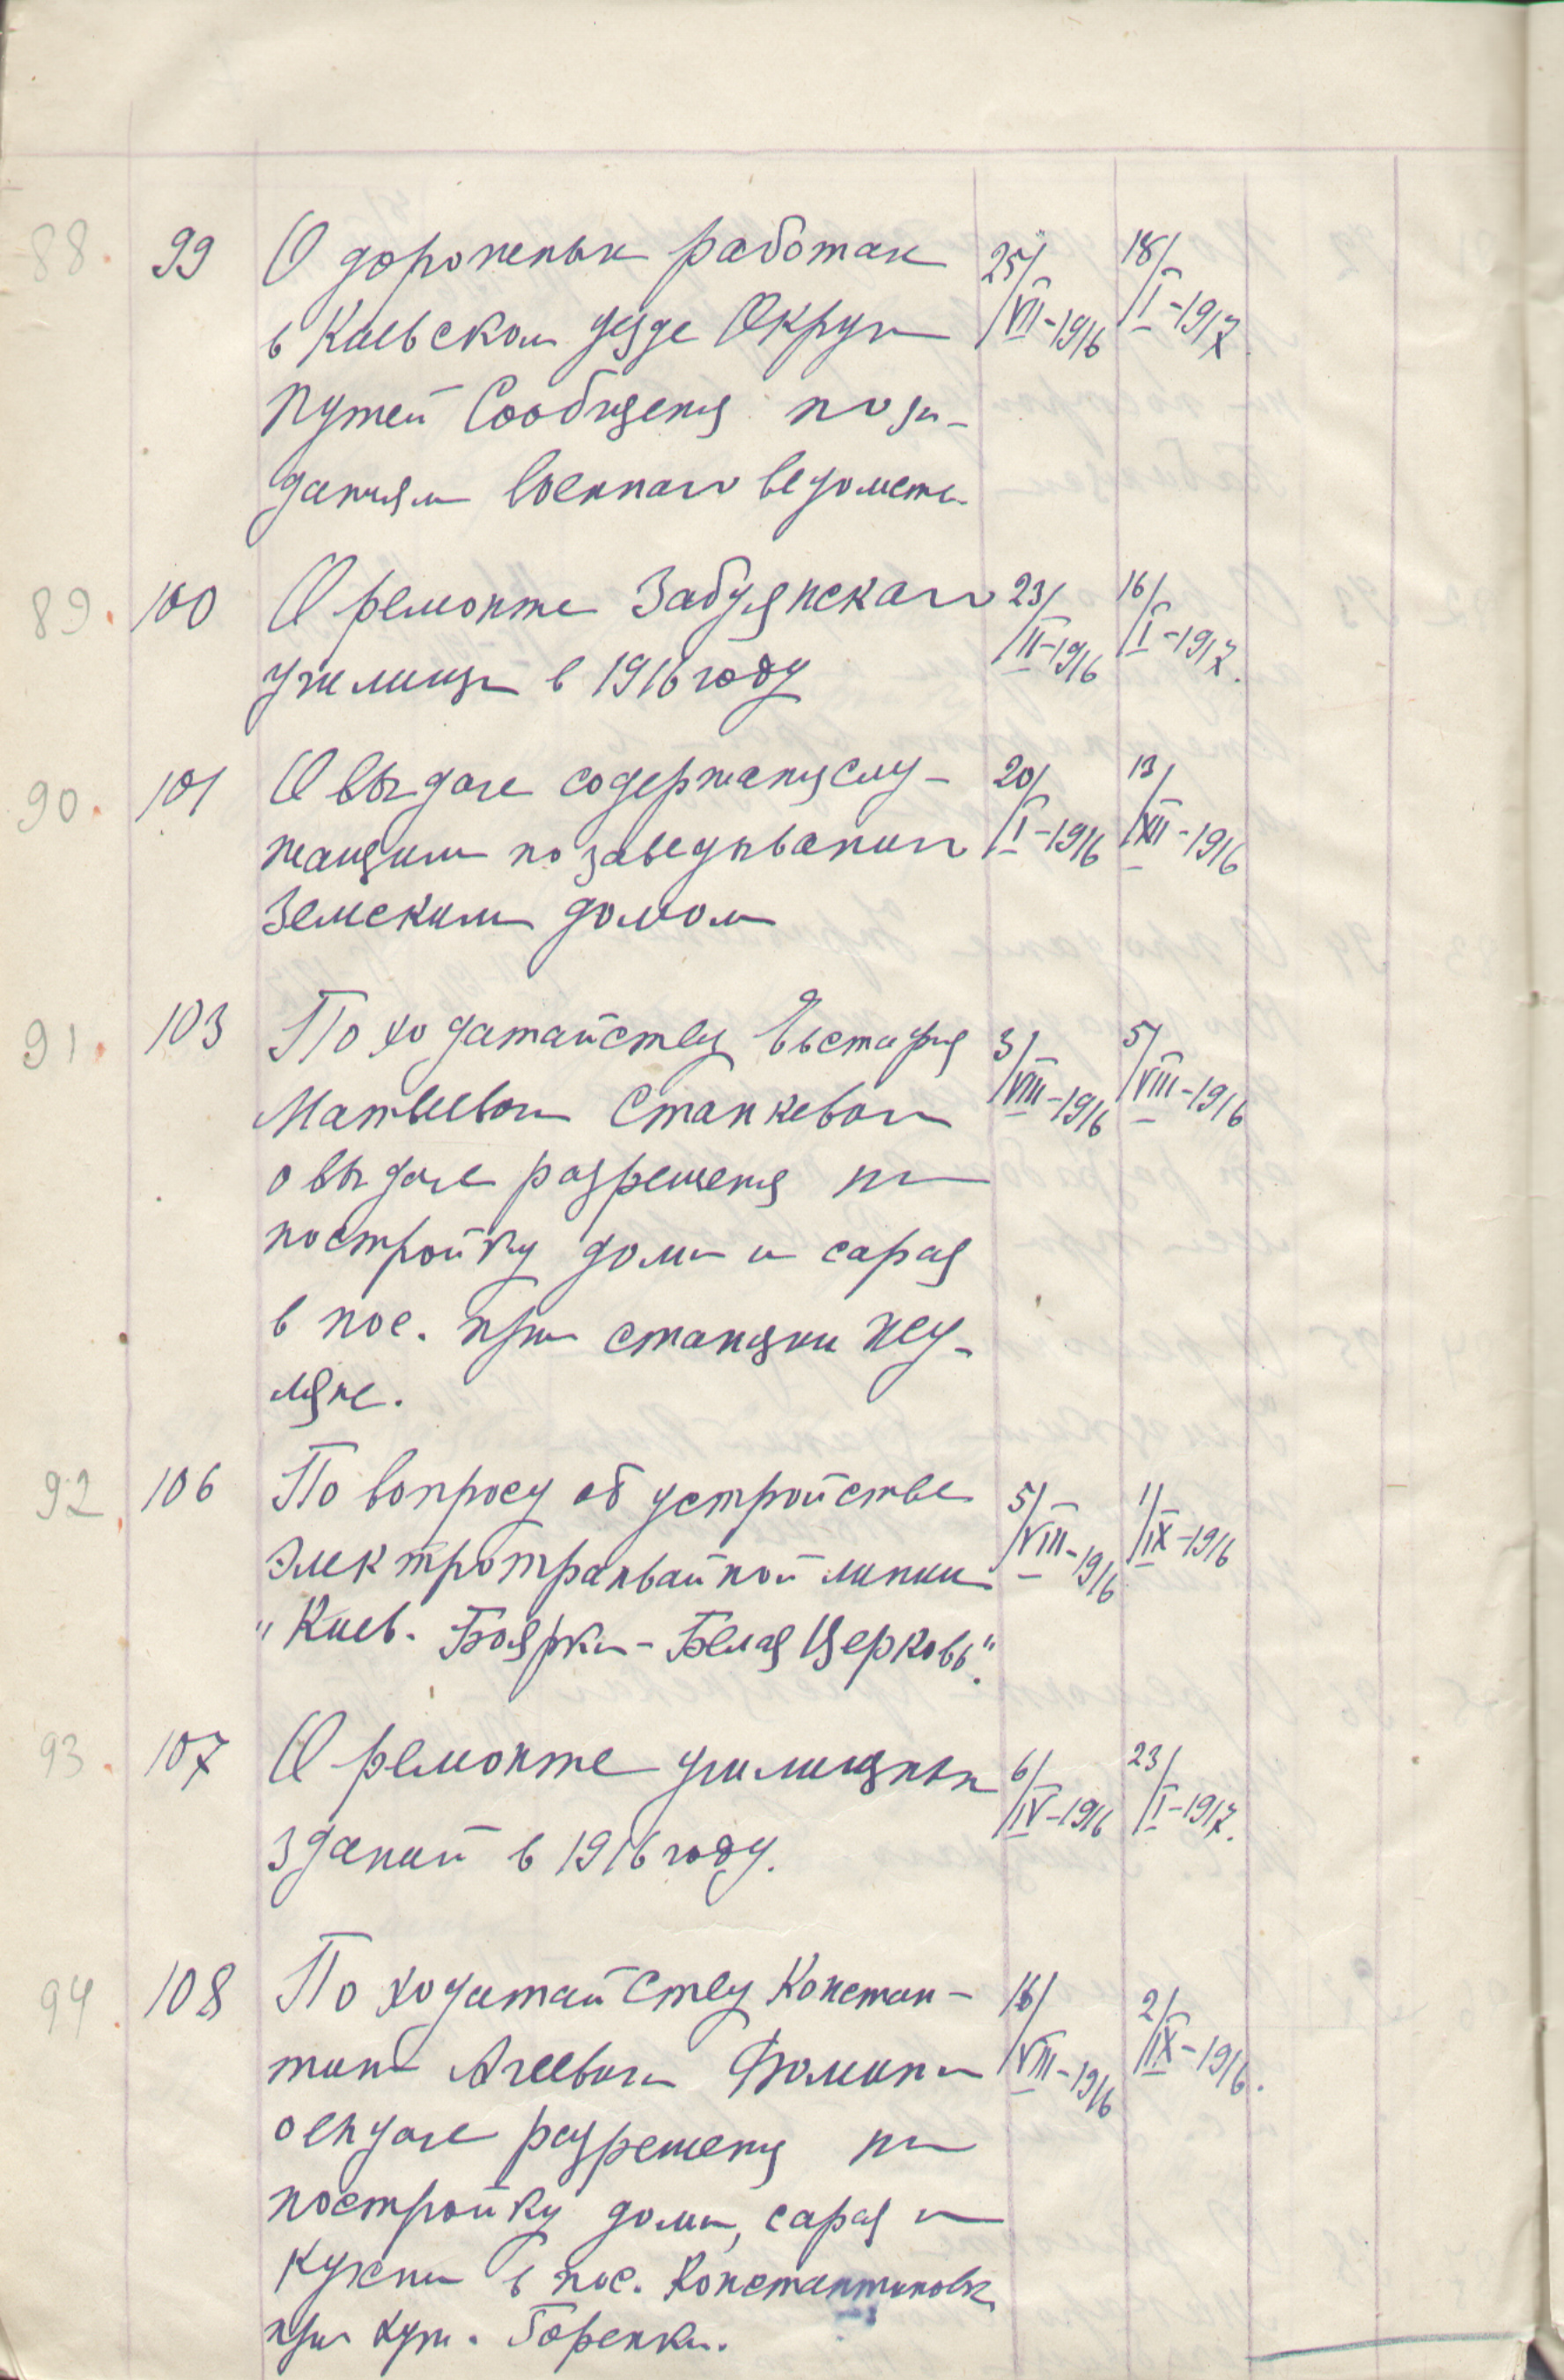 88. 99 О дорожных работах 25/VII-1916 18/I-1917
в Киевском уезде Округа
Путей Сообщения по за-
даниям военного ведомства
89. 100 О ремонте Забуянскаго 23/II-1916 16/I-1917.
училища в 1916 году
90. 101 О выдаче содержания слу- 20/I-1916 13/XII-1916
жащим по заведыванию
Земским домом
91. 103 По ходатайству Евстафия 3/VIII-1916 5/VIII-1916
Матвеева Станкевича
о выдаче разрешения на
постройку дома и сарая
в пос. при станции Жу-
ляне.
92. 106 По вопросу об устройстве 5/VIII-1916 1/IX-1916
электротрамвайной линии
"Киев-Боярка-Белая Церковь".
93. 107 О ремонте училищных 6/IV-1916 23/I-1917.
зданий в 1916 году.
94. 108 По ходатайству Констан- 16/VIII-1916 2/IX-1916.
тина Агеевича Фомина
о выдаче разрешения на
постройку дома, сарая и
кухни в пос. Константиновка
при хут. Горенка.